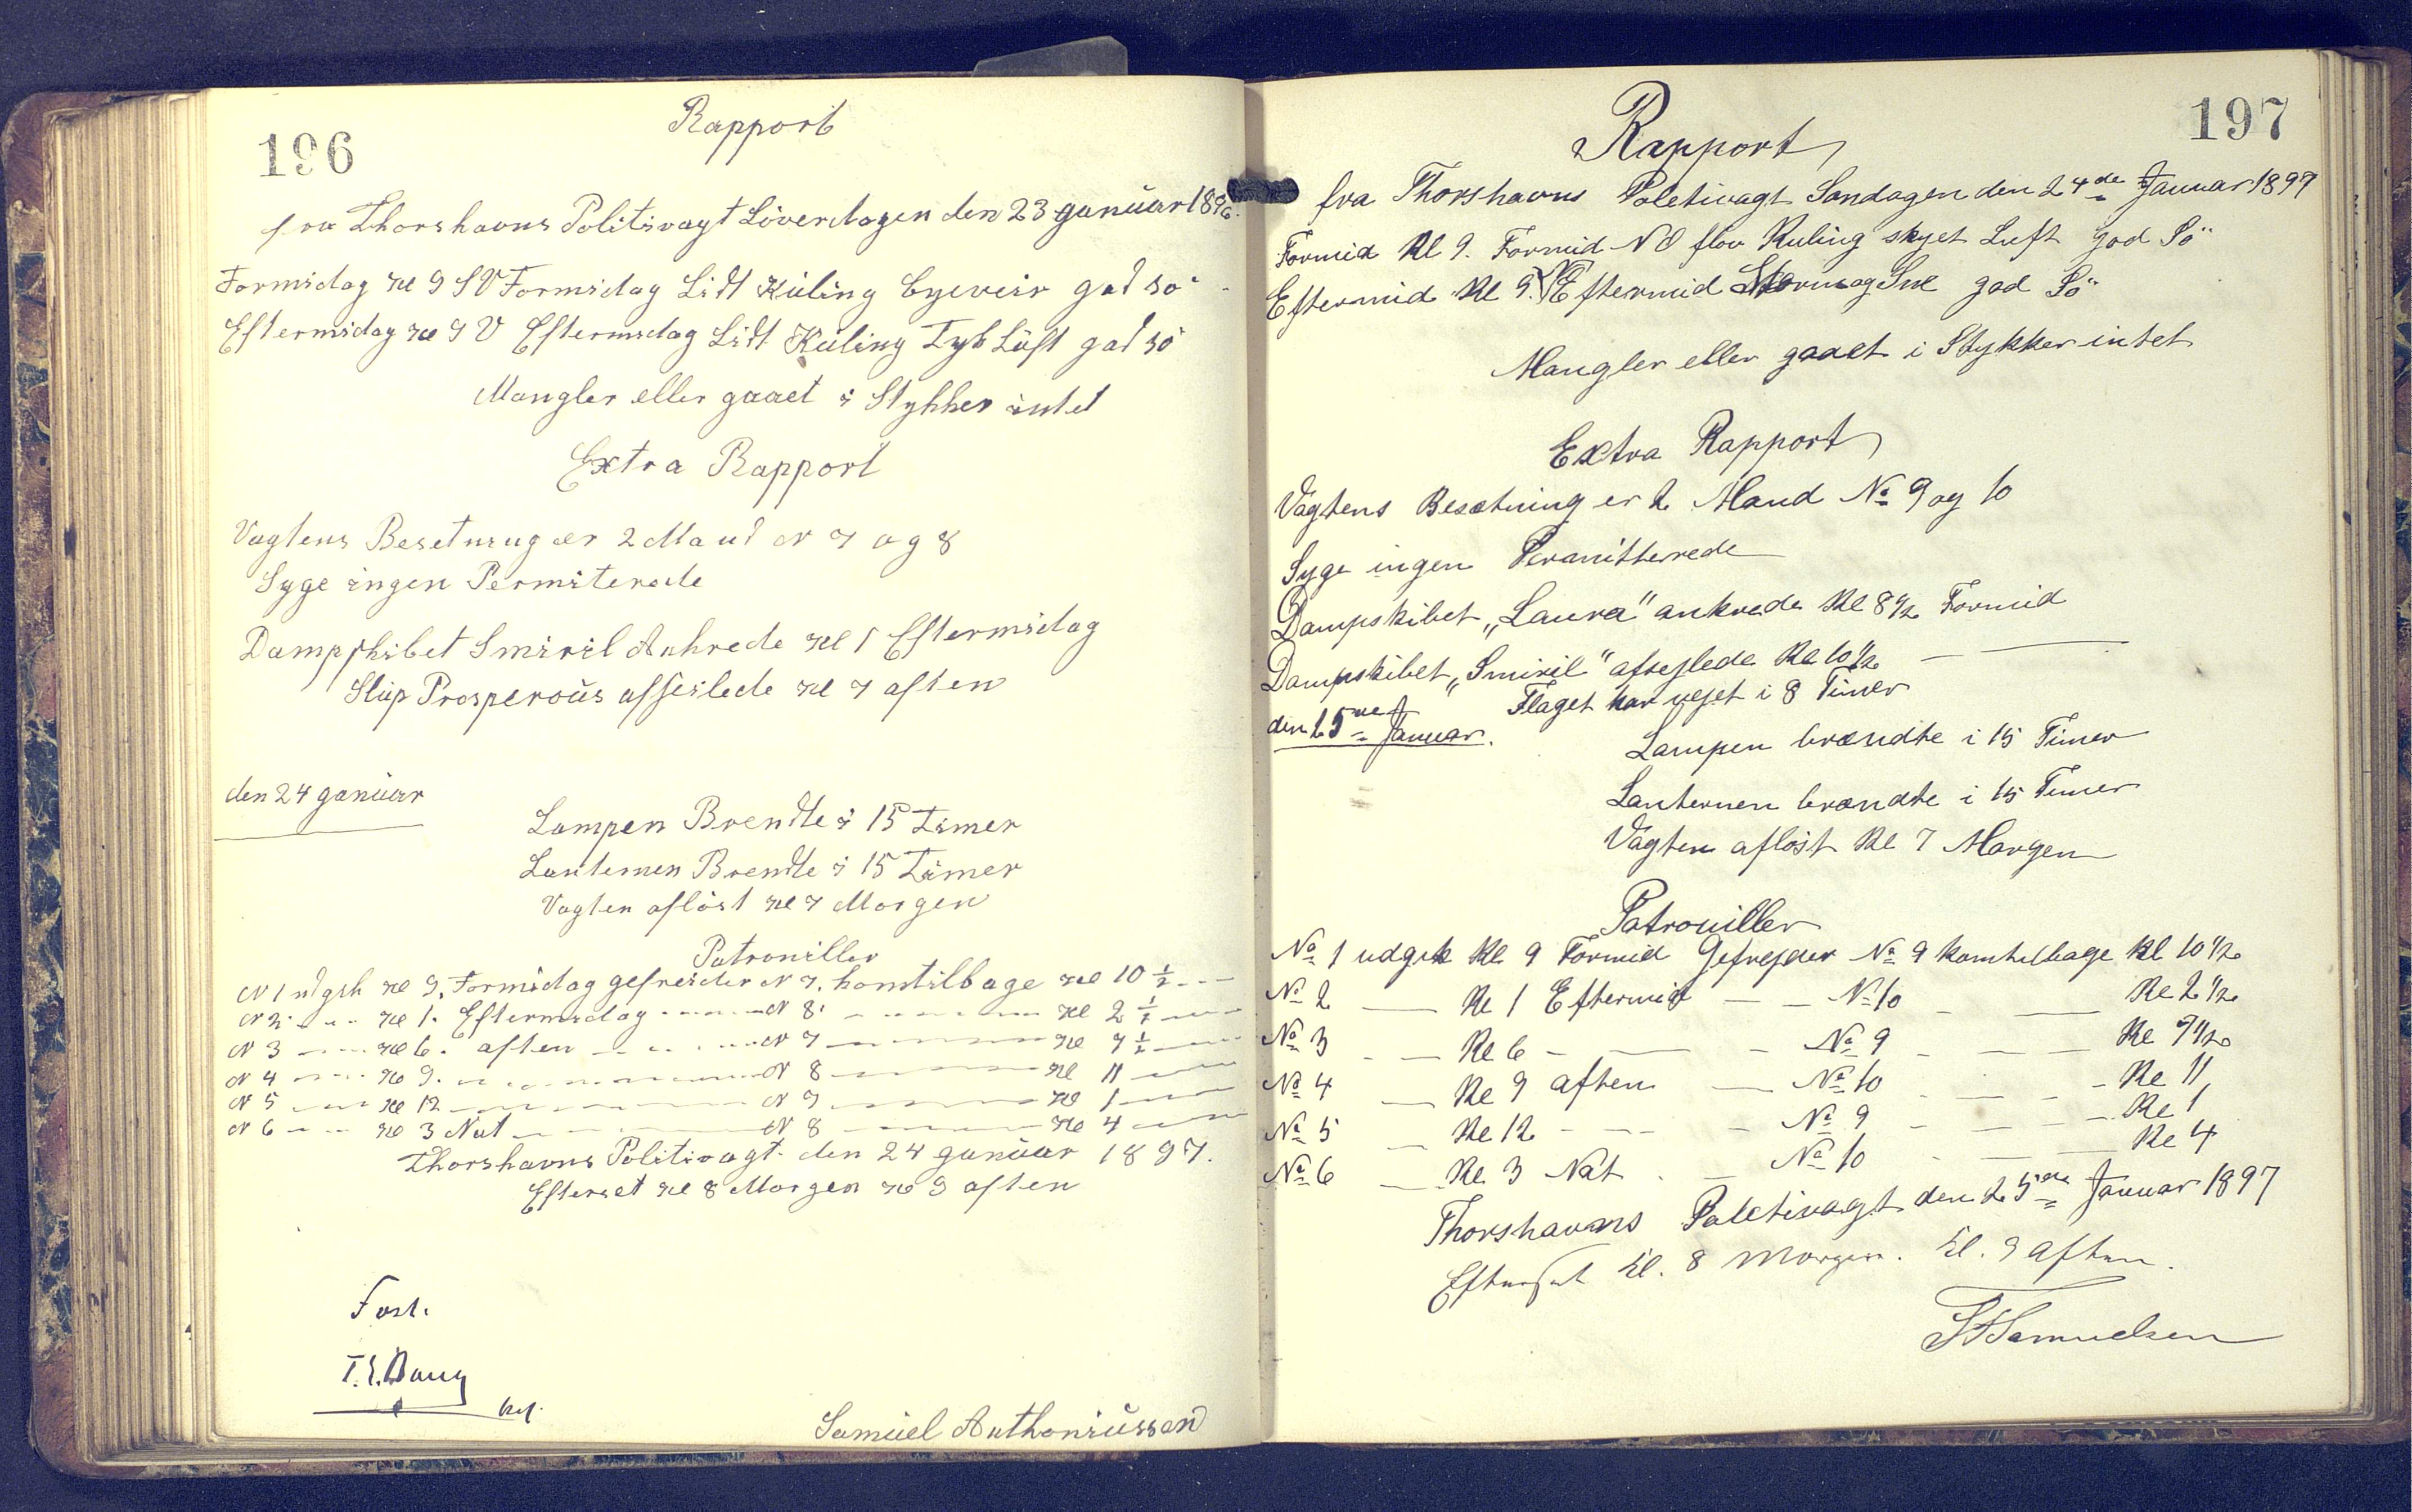 196
Rapport
fra Thorshavns Politivagt Löverdagen den 23 januar 1896.
Formidag Kl 9 SV Formidag Lidt Küling Byeveir god sö
Eftermidag Kl 9 V Eftermidag Lidt Küling Tyk Lüft god sö
Mangler eller gaaet i Stykker intet
Extra Rapport
Vagtens Besetning er 2 Mand N 7 og 8
Syge ingen Permiterede
Dampskibet Smiril Ankrede Kl 1 Eftermidag
Slüp Prosperoüs affseilede Kl 7 aften
den 24 januar
Lampen Brendte i 15 Timer
Lanternen Brendte i 15 Timer
Vagten aflöst Kl 7 Morgen
Patrouiller
N 1 udgik Kl 9. Formidag gefreider N 7. komtilbage Kl 10 ½
N 2 Kl 1. Eftermidag N 8. Kl 2 ½
N 3 Kl 6. aften N 7 Kl 7 ½
N 4 Kl 9. N 8 Kl 11
N 5 Kl 12 N 7 Kl 1
N 6 Kl 3 Nat N 8 Kl 4
Thorshavns Politivagt den 24 januar 1897.
Efterset Kl 8 Morgen Kl 9 aften
T.S.
Samüel Anthoniüssen
197
Rapport
fra Thorshavns Poletivagt Søndagen den 24de Januar 1897
Formid Kl 9. Formid NO flov Kuling skyet Luft god Sö
Eftermid Kl 9. N Eftermid Storm og Sne god Sö
Mangler eller gaaet i Stykker intet
Extra Rapport
Vagtens Besætning er 2 Mand No 9 og 10
Syge ingen Permitterede
Dampskibet „Laura" ankrede Kl 8½ Formid
Dampskibet „Smiril" afsejlede Kl 10½ —
Flaget har vejet i 8 Timer
den 25de Januar.
Lampen brændte i 15 Timer
Lanternen brændte i 15 Timer
Vagten aflöst Kl 7 Morgen
Patrouiller
No 1 udgik Kl 9 Formid Gefrejder No 9 komtilbage Kl 10½
No 2 — Kl 1 Eftermid — — No 10 — Kl 2½
No 3 — Kl 6 — — No 9 — Kl 7½
No 4 — Kl 9 aften — No 10 — Kl 11
No 5 — Kl 12 — — No 9 — Kl 1
No 6 — Kl 3 Nat — No 10 — Kl 4
Thorshavns Poletivagt den 25de Januar 1897
Efterset kl. 8 Morgen. kl. 9 aften.
Samuelsen